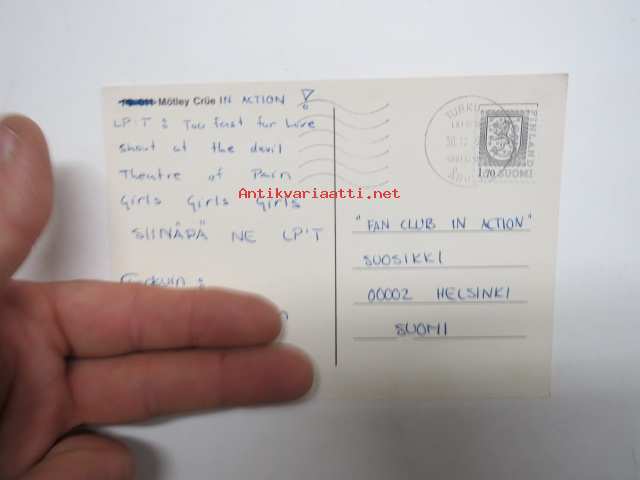 Mötley Crüe IN ACTION !
LP:T : Too fast for love
shout at the devil
Theatre of Pain
Girls Girls Girls
SIINÄPÄ NE LP'T
TURKU
SUOMI FINLAND
1,70
"FAN CLUB IN ACTION"
SUOSIKKI
00002 HELSINKI
SUOMI
Antikvariaatti.net